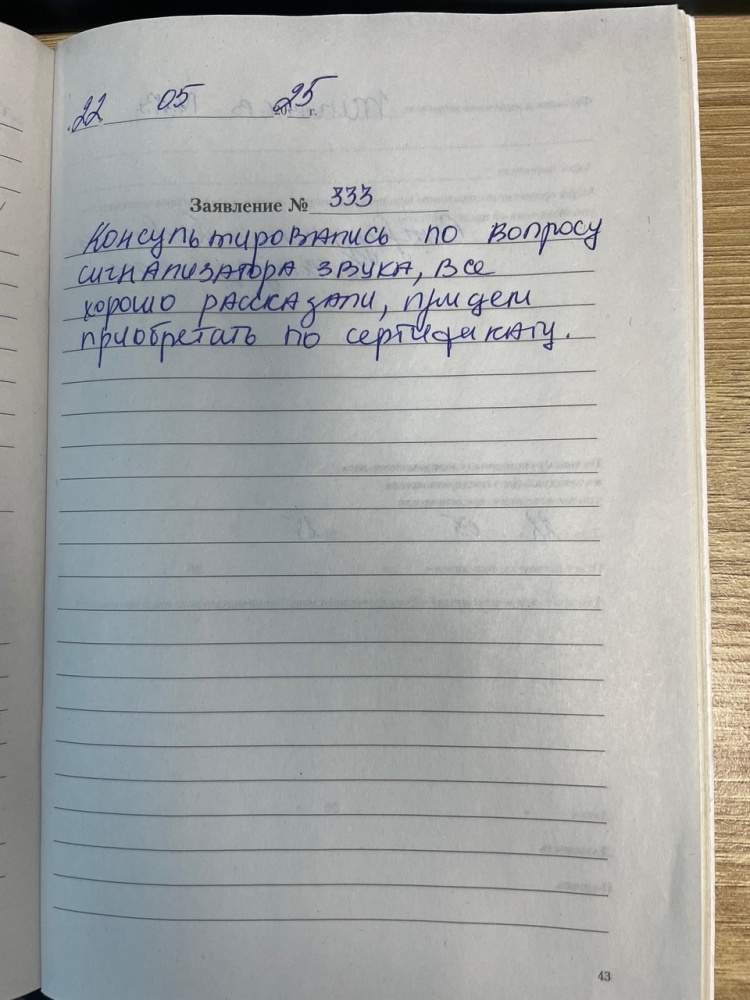 22 05 2025 г.
Заявление № 333
Консультировались по вопросу
сигнализатора звука, все
хорошо рассказали, придем
приобретать по сертификату.
43